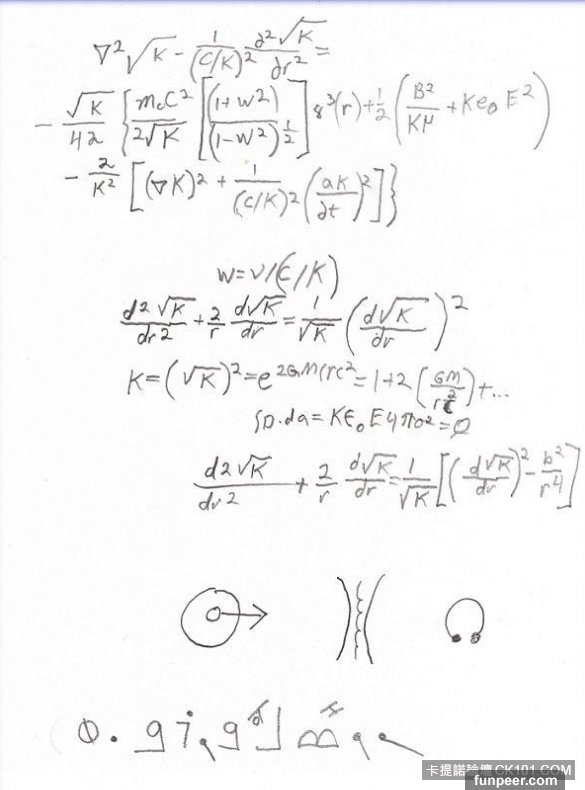 ∇²√K - 1/(C/K)² ∂²√K/∂r² =
- √K/42 { m₀C²/2√K [ (1+w²)/(1-w²)^½ ] 8³(r) + ½ ( B²/Kμ + Ke₀E² )
- 2/K² [ (∇K)² + 1/(C/K)² (aK/∂t)² ] }
w=v/(C/K)
d2√K/dr2 + 2/r d√K/dr = 1/√K ( d√K/dr )²
K=(√K)²=e^2GM(rc²=1+2(GM/rc²)+...
SD.da=Kϵ₀E4πo²=Q
d2√K/dr2 + 2/r d√K/dr = 1/√K [ ( d√K/dr )² - b²/r4 ]
卡提諾論壇 CK101.COM
funpeer.com